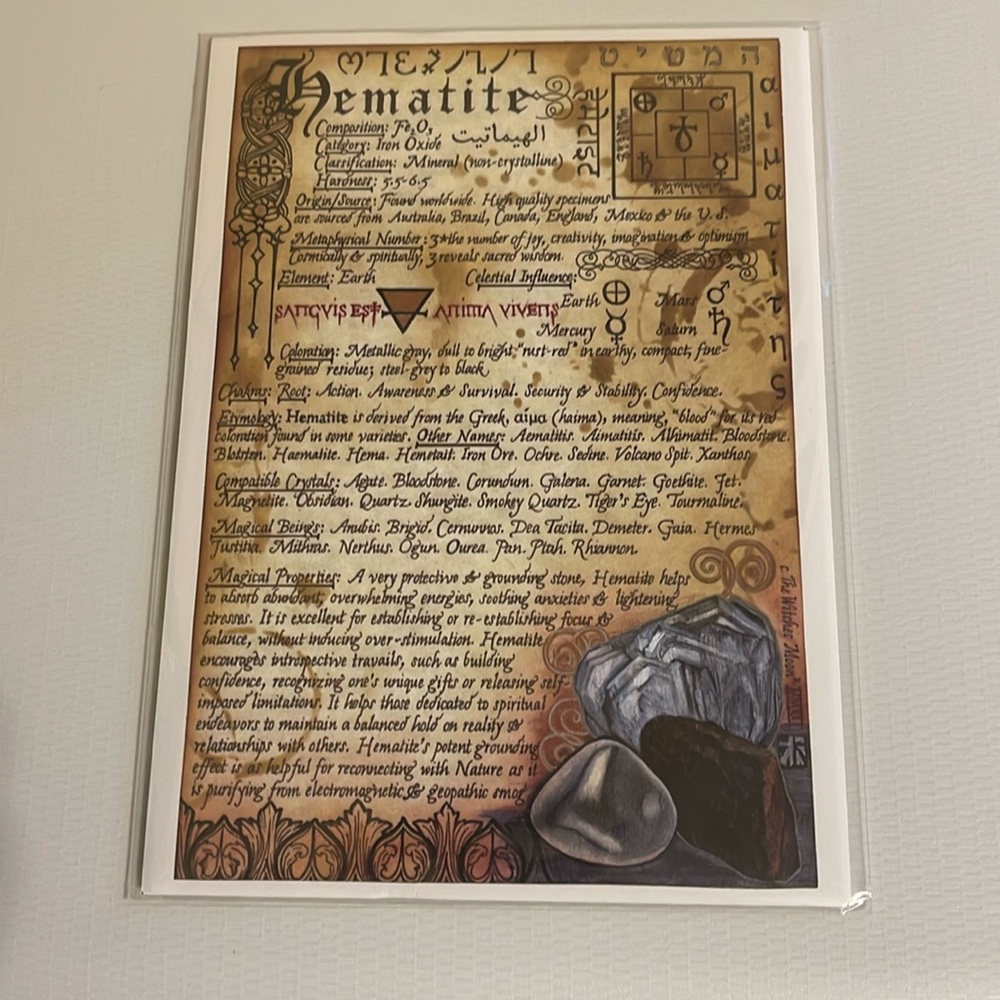 המטיט
Hematite
Composition: Fe₂O₃
الهيماتيت
Category: Iron Oxide
Classification: Mineral (non-crystalline)
Hardness: 5.5-6.5
Origin/Source: Found worldwide. High quality specimens
are sourced from Australia, Brazil, Canada, England, Mexico & the U.S.
Metaphysical Number: 3*the number of joy, creativity, imagination & optimism
Cosmically & spiritually, 3 reveals sacred wisdom.
Element: Earth
Celestial Influence:
Earth ⊕ Mars ♂
SANGVIS EST ANIMA VIVENS
Mercury ☿ Saturn ♄
Coloration: Metallic gray, dull to bright "rust-red" in earthy, compact, fine-
grained residue; steel-grey to black
Chakras: Root: Action. Awareness & Survival. Security & Stability. Confidence.
Etymology: Hematite is derived from the Greek, αίμα (haima), meaning, "blood" for its red
coloration found in some varieties. Other Names: Aematitis. Aimatitis. Alhimatit. Bloodstone.
Blotsten. Haematite. Hema. Hemetait. Iron Ore. Ochre. Sedine. Volcano Spit. Xanthos.
Compatible Crystals: Agate. Bloodstone. Corundum. Galena. Garnet. Goethite. Jet.
Magnetite. Obsidian. Quartz. Shungite. Smokey Quartz. Tiger's Eye. Tourmaline.
Magical Beings: Anubis. Brigid. Cernunnos. Dea Tacita. Demeter. Gaia. Hermes
Justitia. Mithras. Nerthus. Ogun. Ourea. Pan. Ptah. Rhiannon.
Magical Properties: A very protective & grounding stone, Hematite helps
to absorb abundant, overwhelming energies, soothing anxieties & lightening
stresses. It is excellent for establishing or re-establishing focus &
balance, without inducing over-stimulation. Hematite
encourages introspective travails, such as building
confidence, recognizing one's unique gifts or releasing self-
imposed limitations. It helps those dedicated to spiritual
endeavors to maintain a balanced hold on reality &
relationships with others. Hematite's potent grounding
effect is as helpful for reconnecting with Nature as it
is purifying from electromagnetic & geopathic smog.
αιματίτης
c. The Witches' Moon